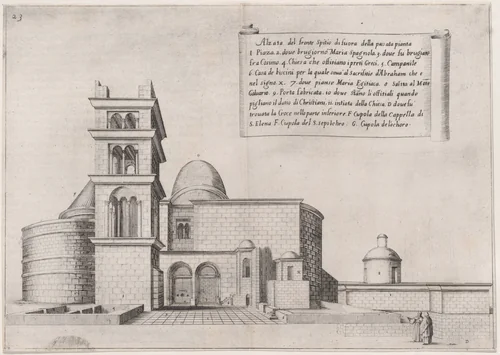 23
Alzata del fronte Spitio di fuora della passata pianta
1. Piazza. 2. doue brugiorno Maria Spagnola. 3. doue fu brugiato
fra Cosimo. 4. Chiesa che offitiano i preti Greci. 5. Campanile
6. Casa de vicini per la quale al Sacrifitio d'Abraham che e
nel segno. X. 7. doue pianse Maria Egittiaca. 8 Salita al Mon
Caluario. 9. Porta fabricata. 10 doue stano li offitiali quando
pigliano il datio di Christiani. 11. intrata della Chiesa. D doue fu
trouata la Croce nella parte inferiore. F Cupola della Cappella di
S. Elena F. Cupola del S. Sepolchro. G. Cupola del choro